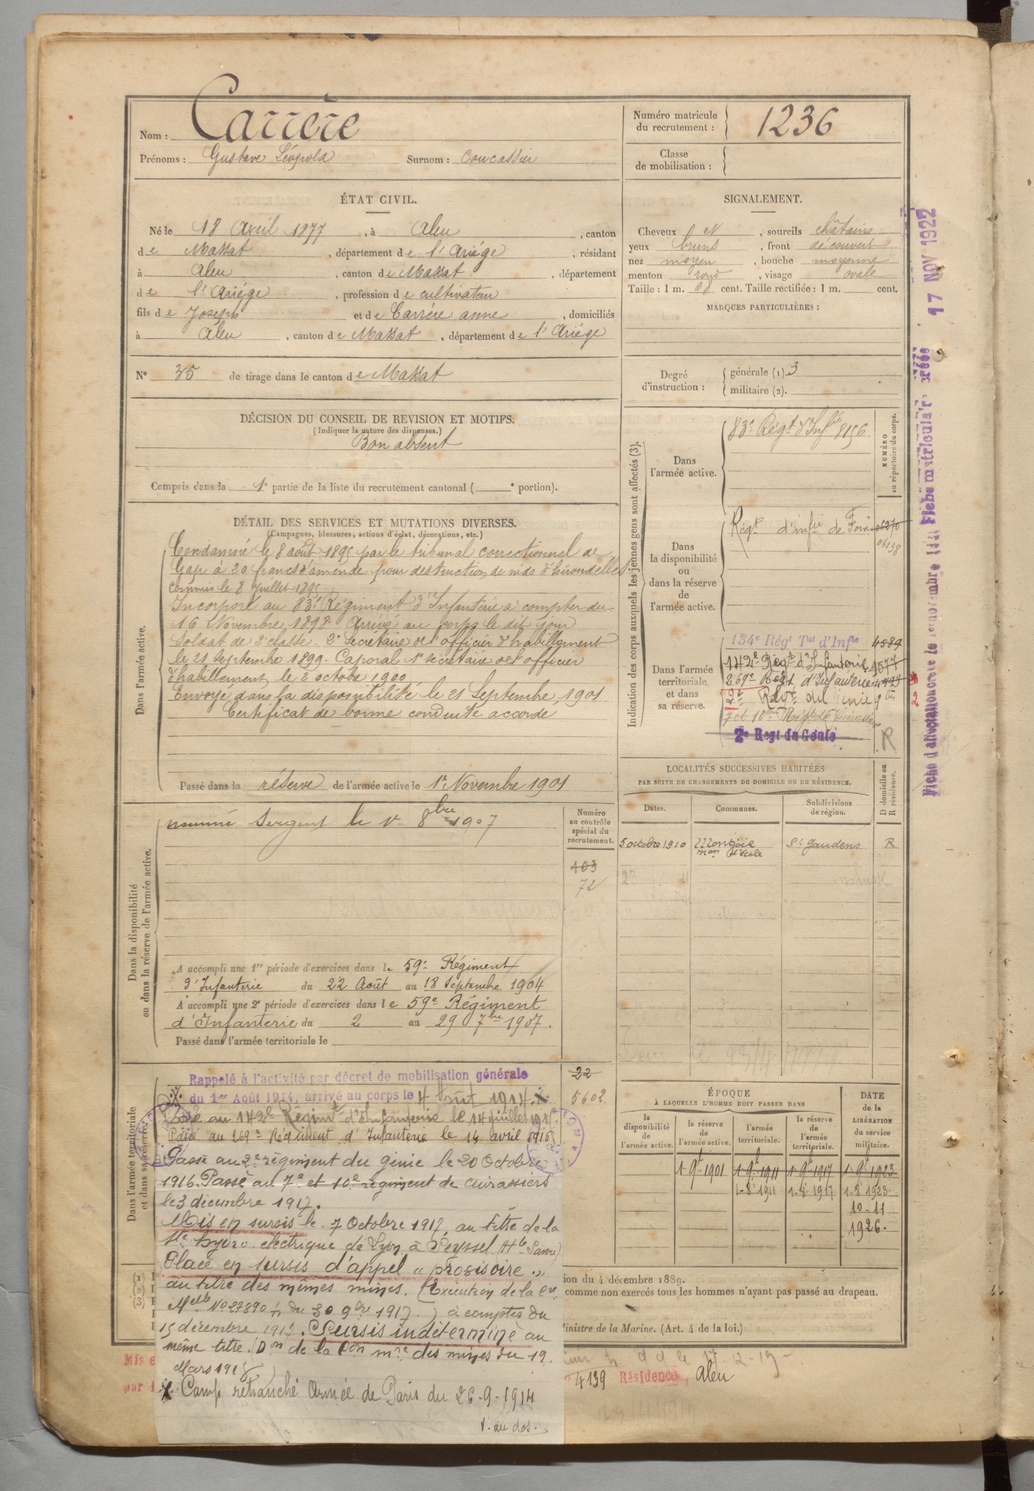 Nom : Carrère
Prénoms : Gustave Léopold Surnom : Coucassier
Numéro matricule du recrutement : 1236
Classe de mobilisation :
ÉTAT CIVIL.
Né le 18 Avril 1877, à Aleu, canton
de Massat, département de l'Ariège, résidant
à Aleu, canton de Massat, département
de l'Ariège, profession de cultivateur
fils de Joseph et de Carrère anne, domiciliés
à Aleu, canton de Massat, département de l'Ariège
N° 35 de tirage dans le canton de Massat
SIGNALEMENT.
Cheveux N, sourcils châtains
yeux bruns, front découvert
nez moyen, bouche moyenne
menton rond, visage ovale
Taille : 1 m. cent. Taille rectifiée : 1 m. cent.
MARQUES PARTICULIÈRES :
Degré d'instruction : générale (1). 3
militaire (2).
DÉCISION DU CONSEIL DE REVISION ET MOTIFS.
(Indiquer la nature des dispenses.)
Bon absent
Compris dans la 1e partie de la liste du recrutement cantonal ( e portion).
DÉTAIL DES SERVICES ET MUTATIONS DIVERSES.
(Campagnes, blessures, actions d'éclat, décorations, etc.)
Dans l'armée active.
Condamné le 8 août 1895 par le tribunal correctionnel de
Gap à 20 francs d'amende pour destruction de nids d'hirondelles
commis le 8 Juillet 1895
Incorporé au 83e Régiment d'Infanterie à compter du
16 Novembre 1898 Arrivé au corps le dit jour
Soldat de 2e classe. 2e Secrétaire de l'officier d'habillement
le 21 septembre 1899. Caporal 1er secrétaire de l'officier
d'habillement, le 2 octobre 1900
Envoyé dans la disponibilité le 21 Septembre 1901
Certificat de bonne conduite accordé
Passé dans la réserve de l'armée active le 1er Novembre 1901
Indication des corps auxquels les jeunes gens sont affectés (3).
NUMÉRO au répertoire du corps.
Dans l'armée active.
83e Régt d'Infie 8156
Dans la disponibilité ou dans la réserve de l'armée active.
Régt d'infie de Foix
Dans l'armée territoriale et dans sa réserve.
134e Régt Tal d'Infie 4589
142e Régt d'Infanterie
269e Régt d'Infanterie
2e Régt du Génie
7 et 10e Régt de Cuirassiers
2e Régt du Génie
R
Dans la disponibilité ou dans la réserve de l'armée active.
nommé Sergent le 1er 8bre 1907
Numéro au contrôle spécial du recrutement.
403
72
A accompli une 1re période d'exercices dans le 59e Régiment
d'Infanterie du 22 Août au 18 Septembre 1904
A accompli une 2e période d'exercices dans le 59e Régiment
d'Infanterie du 2 au 29 7bre 1907.
Passé dans l'armée territoriale le
LOCALITÉS SUCCESSIVES HABITÉES
PAR SUITE DE CHANGEMENTS DE DOMICILE OU DE RÉSIDENCE.
Dates. Communes. Subdivisions de région. D domicile ou R résidence.
5 octobre 1910 Montjoie St Gaudens R
Dans l'armée territoriale et dans sa réserve.
Rappelé à l'activité par décret de mobilisation générale
du 1er Août 1914, arrivé au corps le 4 Août 1914. X
Passé au 142e Régimt d'Infanterie le 14 juillet 1915
Passé au 269e Régiment d'Infanterie le 14 avril 1916
Passé au 2e régiment du génie le 20 Octobre
1916. Passé au 7e et 10e régiment de cuirassiers
le 3 décembre 1917.
Mis en sursis le 7 Octobre 1917 au titre de la
Ste hydro électrique de Lyon à Seyssel Hte Savoie
Placé en sursis d'appel "provisoire"
au titre des mêmes mines. (Exécution de la Cre
Melle N° 27890 du 30 9bre 1917) à compter du
15 décembre 1917. Sursis indéterminé au
même titre. Don de la Don mre des mines du 19.
Mars 1918
X Camp retranché Armée de Paris du 26-9-1914
T. au dos.
22
5602
ÉPOQUE
À LAQUELLE L'HOMME DOIT PASSER DANS
la disponibilité de l'armée active. la réserve de l'armée active. l'armée territoriale. la réserve de l'armée territoriale. DATE de la LIBÉRATION du service militaire.
1-9-1901 1-9-1911 1-9-1917 1-9-1923
1-8-1911 1-8-1917 1-8-1923
10-11
1926.
ion du 4 décembre 1889.
comme non exercés tous les hommes n'ayant pas passé au drapeau.
Ministre de la Marine. (Art. 4 de la loi.)
Mis e
par l
4139 Résidence, Aleu
17 NOV 1922